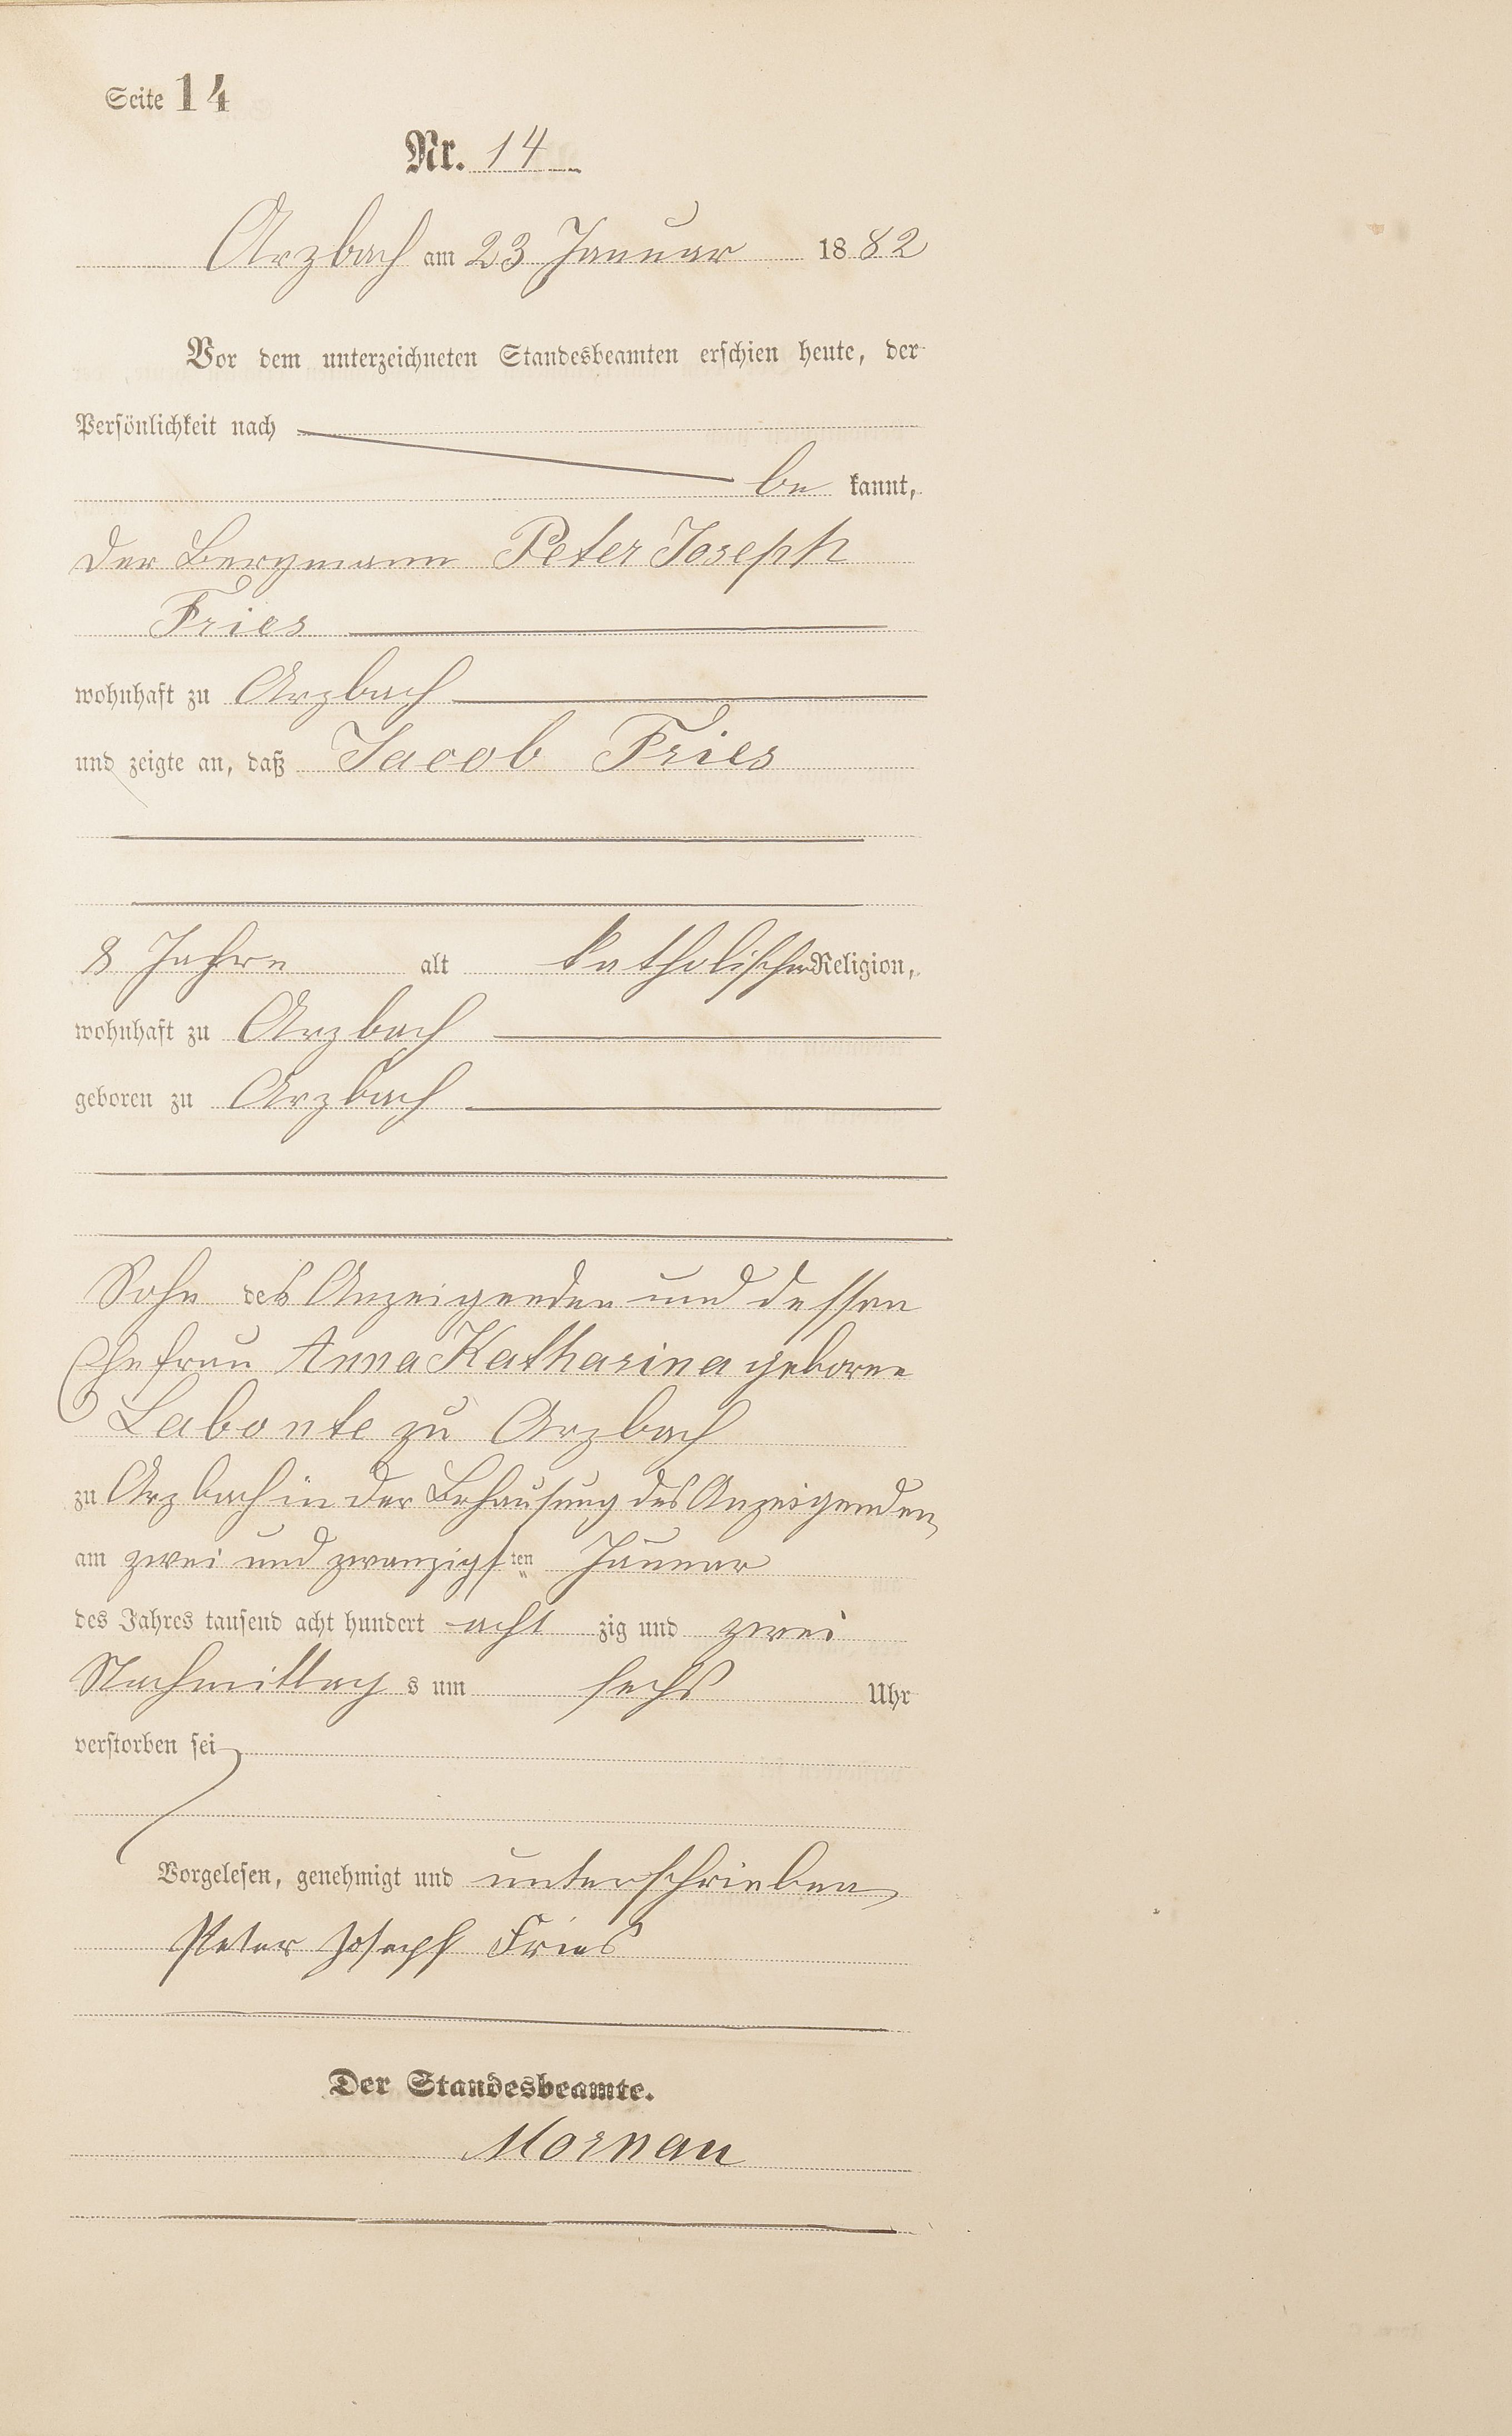 Seite 14
Nr. 14
Arzbach am 23 Januar 1882
Vor dem unterzeichneten Standesbeamten erschien heute, der
Persönlichkeit nach
be kannt,
der Bergmann Peter Joseph
Fries
wohnhaft zu Arzbach
und zeigte an, daß Jacob Fries
8 Jahre alt katholischer Religion,
wohnhaft zu Arzbach
geboren zu Arzbach
Sohn des Anzeigenden und dessen
Ehefrau Anna Katharina geborne
Labonte zu Arzbach
zu Arzbach in der Behausung des Anzeigenden,
am zwei und zwanzigsten Januar
des Jahres tausend acht hundert acht zig und zwei
Nachmittag s um sechs Uhr
verstorben sei
Vorgelesen, genehmigt und unterschrieben
Peter Joseph Fries
Der Standesbeamte.
Mornau